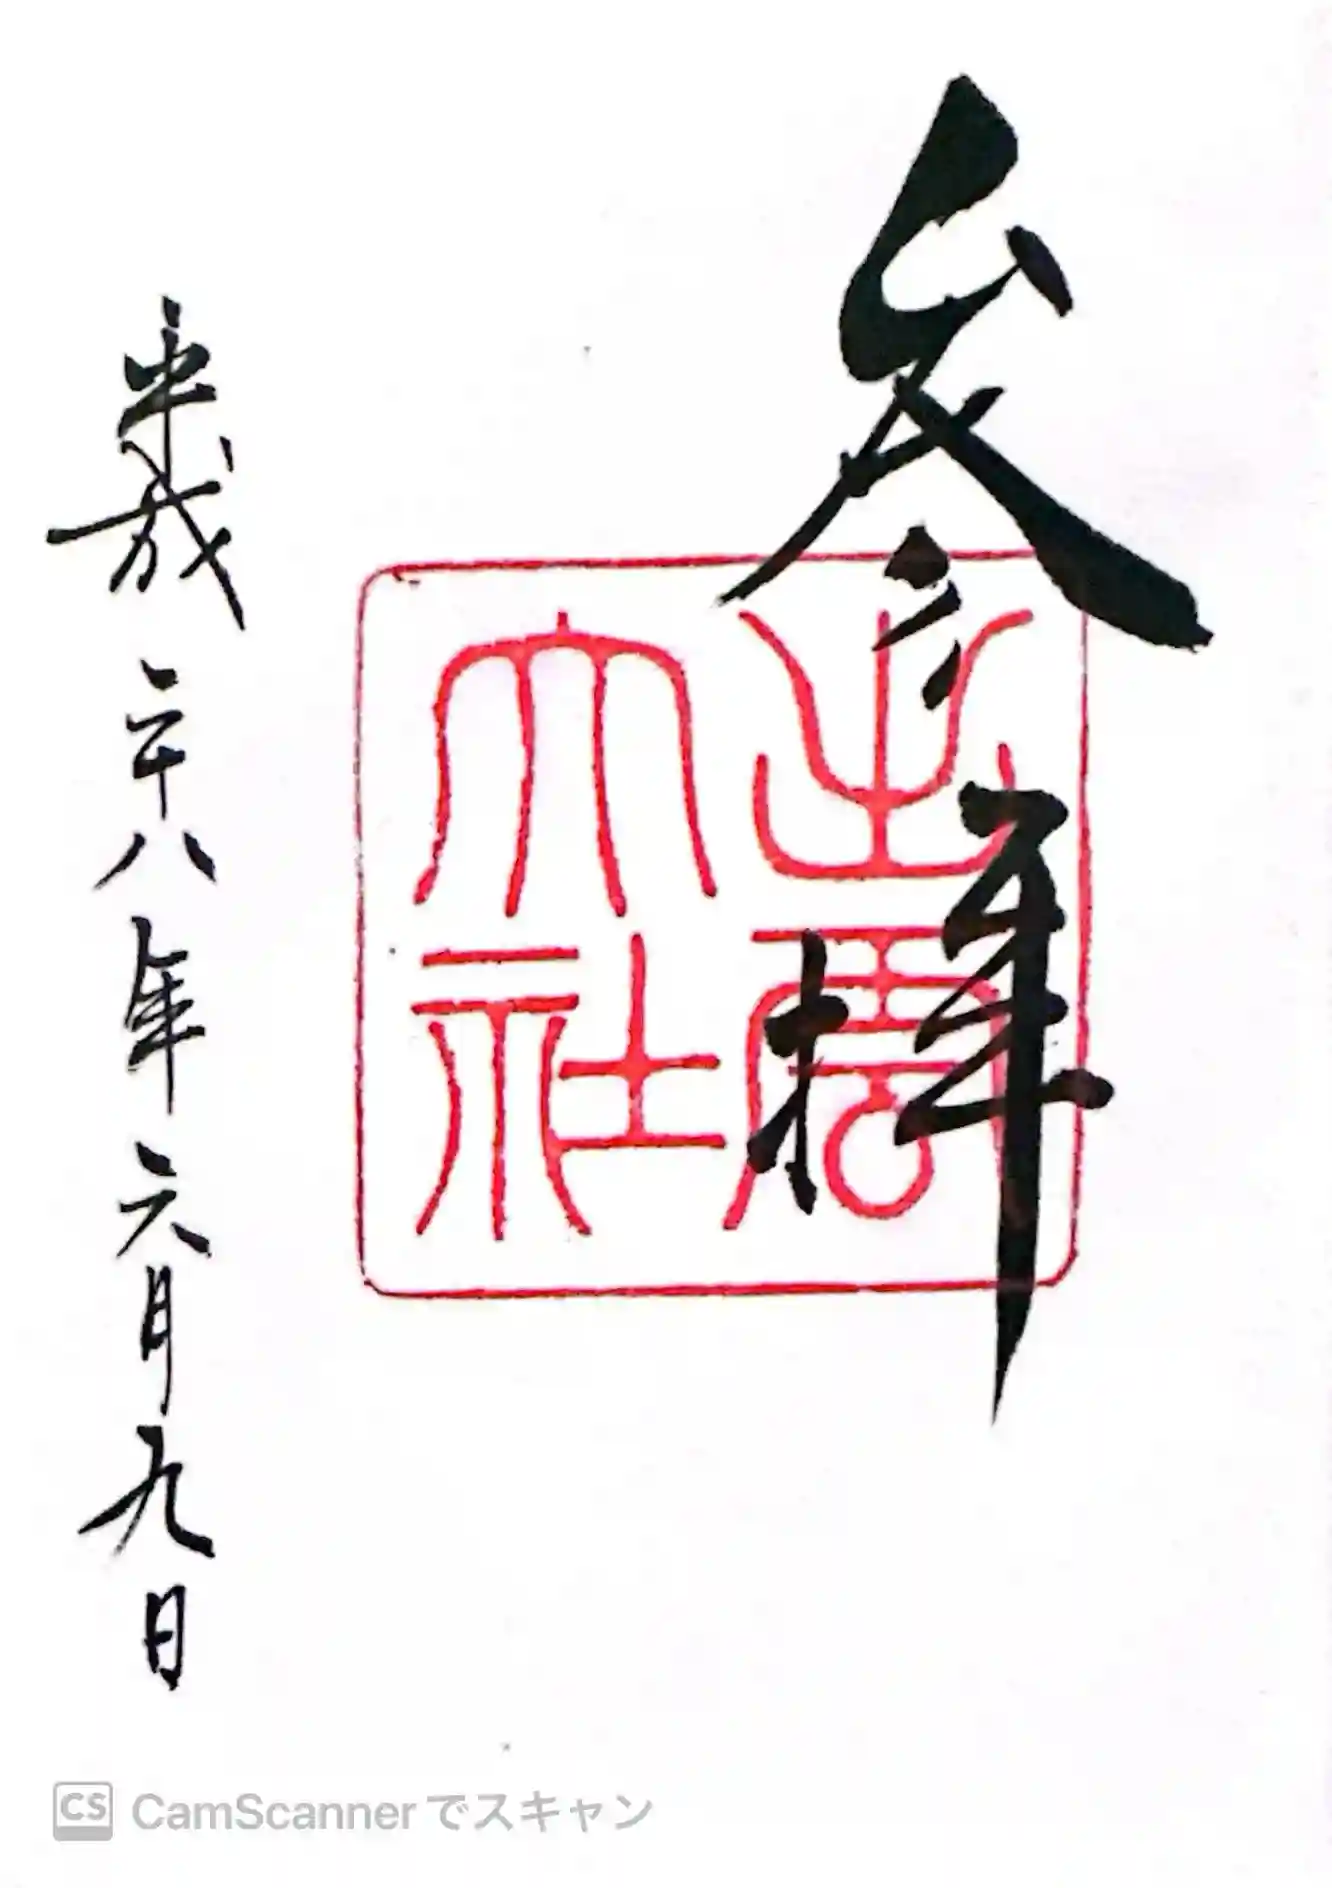 参拝
出雲
大社
平成二十八年六月九日
CS CamScannerでスキャン